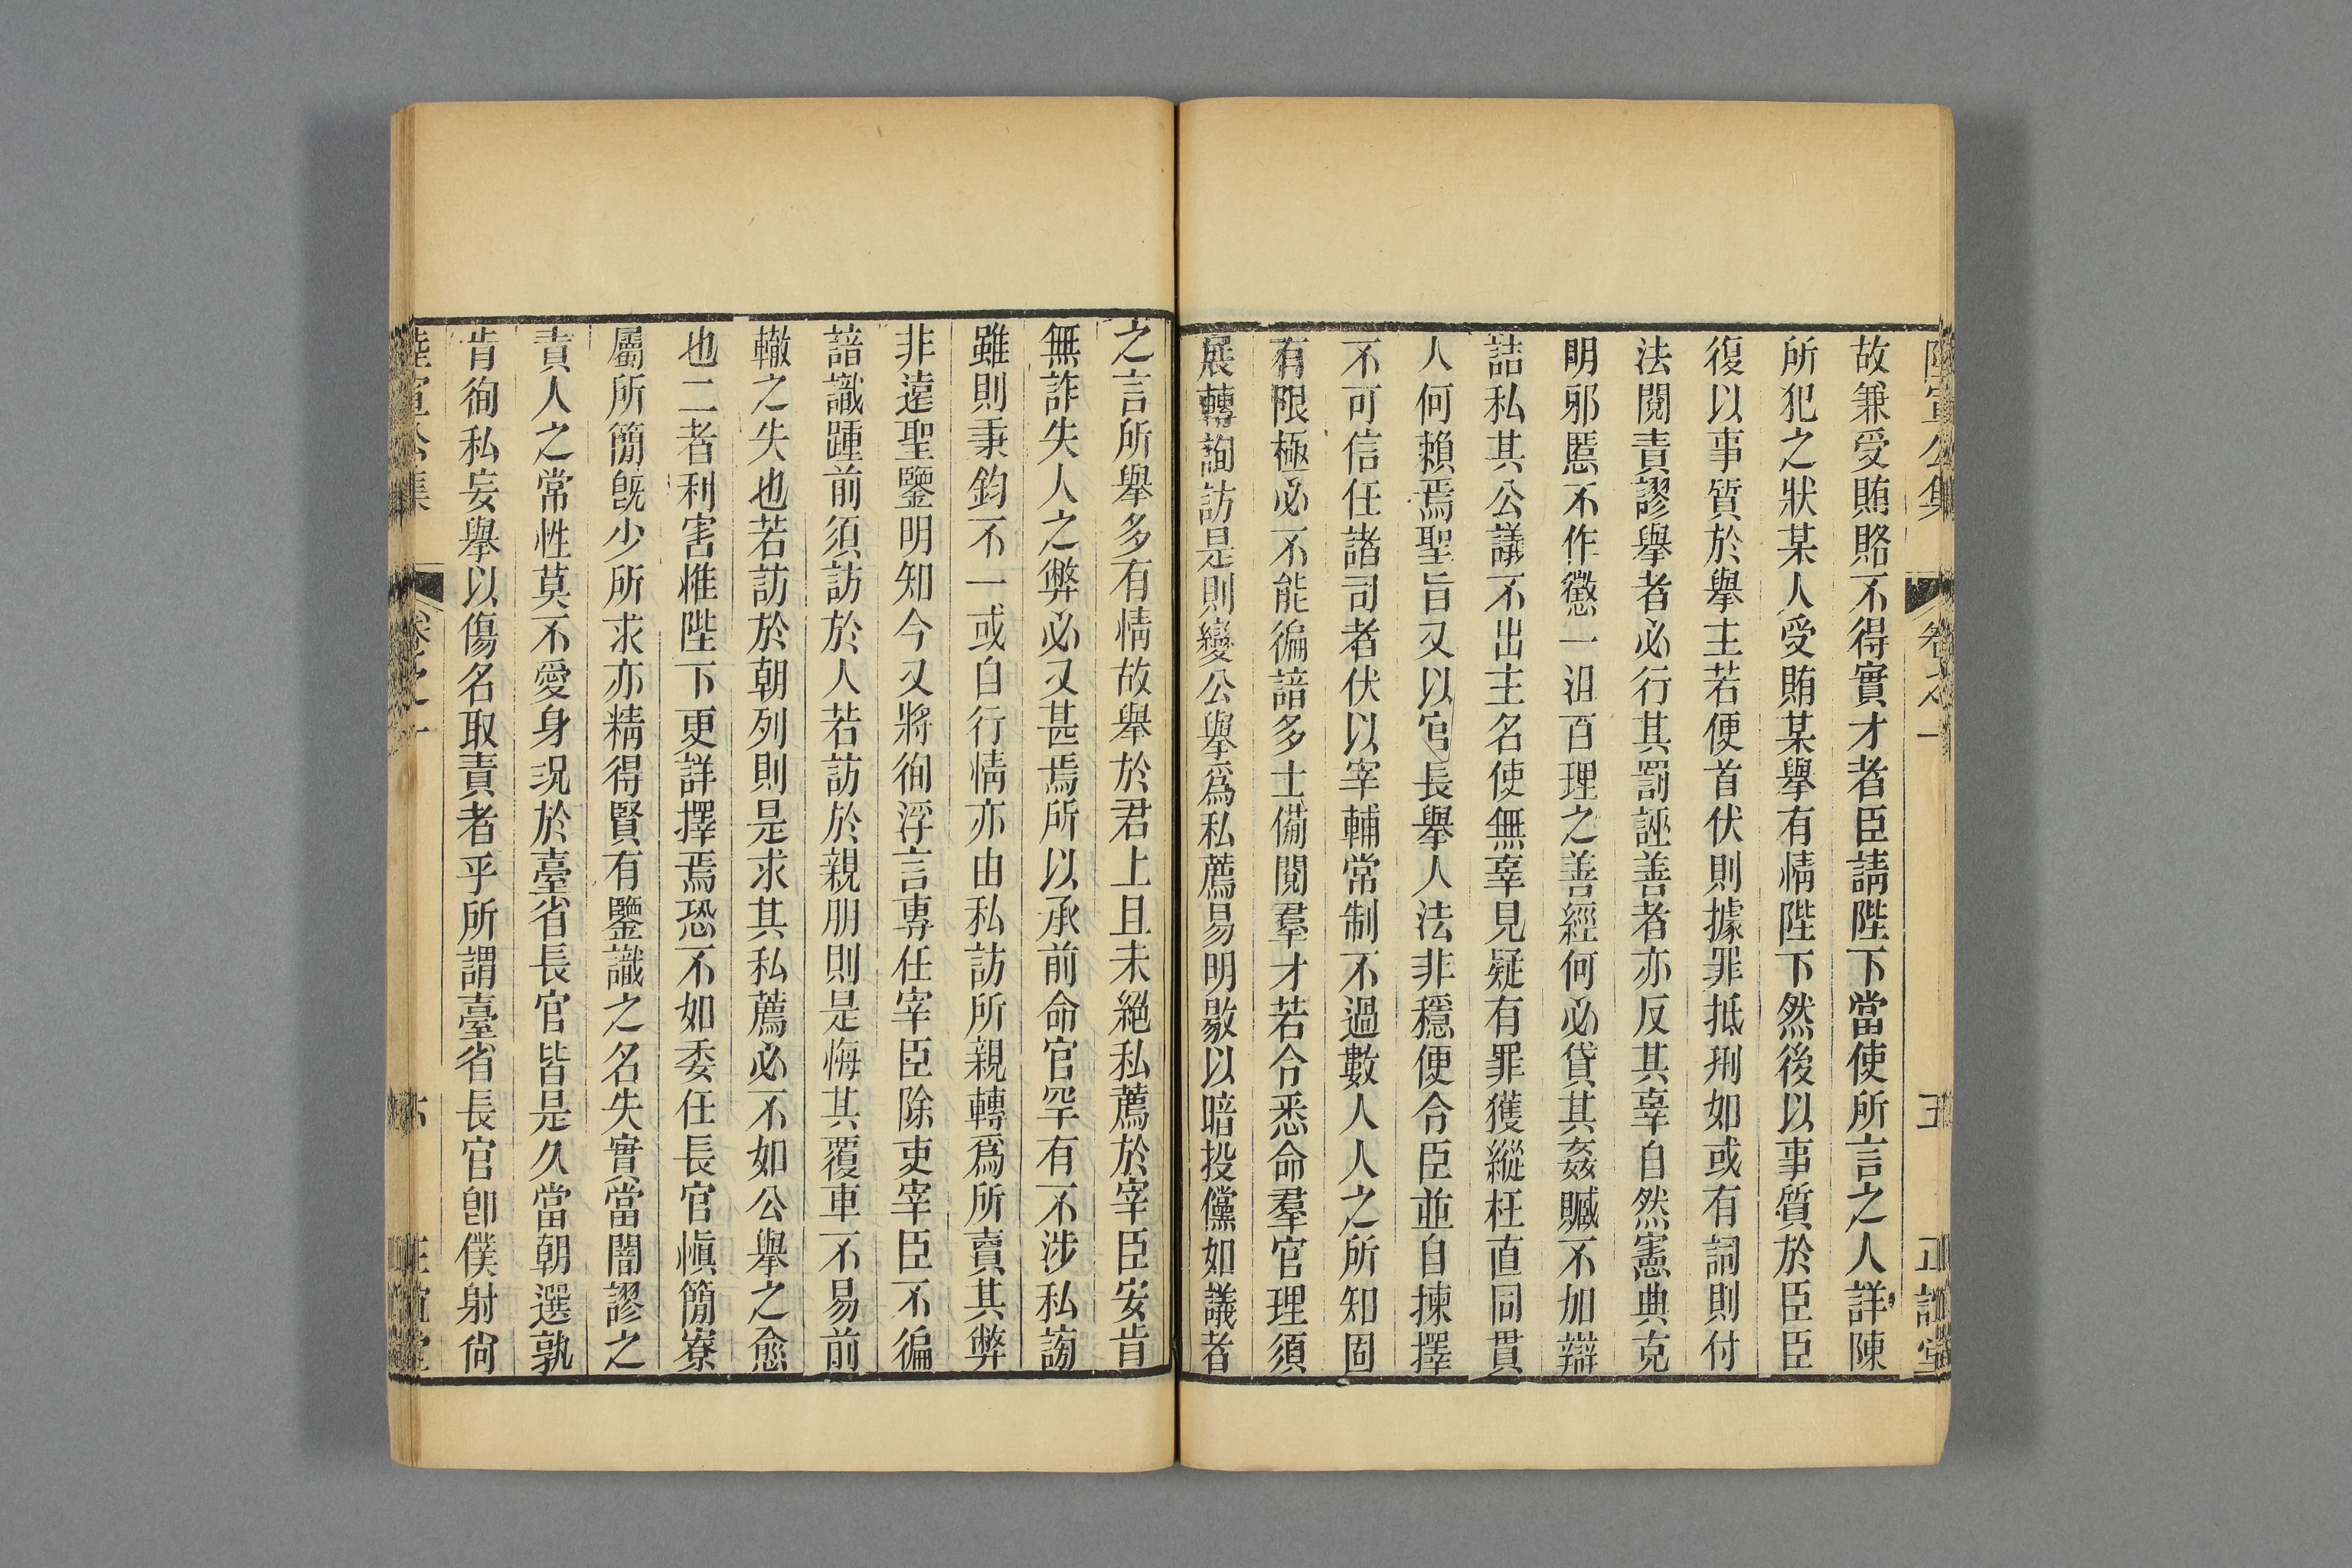 故兼受賄賂不得實才者臣請陛下當使所言之人詳陳
所犯之狀某人受賄某舉有情陛下然後以事質於臣臣
復以事質於舉主若便首伏則據罪抵刑如或有詞則付
法閱責謬舉者必行其罰誣善者亦反其辜自然憲典克
明邪慝不作懲一沮百理之善經何必貸其姦贓不加辯
詰私其公議不出主名使無辜見疑有罪獲縱枉直同貫
人何賴焉聖旨又以官長舉人法非穩便令臣並自揀擇
不可信任諸司者伏以宰輔常制不過數人人之所知固
有限極必不能徧諳多士備閱羣才若令悉命羣官理須
展轉詢訪是則變公舉爲私薦易明敭以暗投儻如議者
之言所舉多有情故舉於君上且未絕私薦於宰臣安肯
無詐失人之弊必又甚焉所以承前命官罕有不涉私謗
雖則秉鈞不一或自行情亦由私訪所親轉爲所賣其弊
非遠聖鑒明知今又將徇浮言專任宰臣除吏宰臣不徧
諳識踵前須訪於人若訪於親朋則是悔其覆車不易前
轍之失也若訪於朝列則是求其私薦必不如公舉之愈
也二者利害惟陛下更詳擇焉恐不如委任長官愼簡寮
屬所簡旣少所求亦精得賢有鑒識之名失實當闇謬之
責人之常性莫不愛身況於臺省長官皆是久當朝選孰
肯徇私妄舉以傷名取責者乎所謂臺省長官卽僕射尙